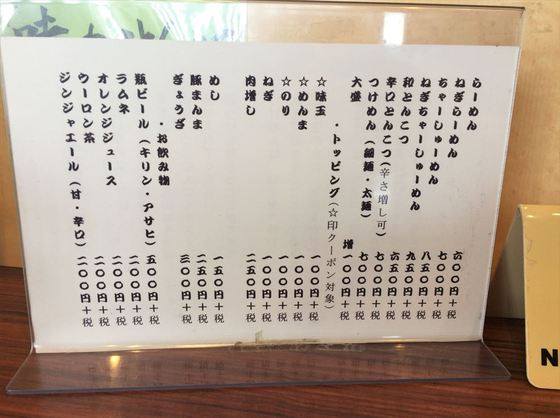 らーめん 六〇〇円+税
ねぎらーめん 七〇〇円+税
ちゃーしゅーめん 八五〇円+税
ねぎちゃーしゅーめん 九五〇円+税
和とんこつ 六五〇円+税
辛口とんこつ(辛さ増し可) 七〇〇円+税
つけめん(細麺・太麺) 七〇〇円+税
大盛 増一〇〇円+税
・トッピング(☆印クーポン対象)
☆味玉 一〇〇円+税
☆めんま 一〇〇円+税
☆のり 一〇〇円+税
ねぎ 一〇〇円+税
肉増し 二五〇円+税
めし 一五〇円+税
豚まんま 二五〇円+税
ぎょうざ 三〇〇円+税
・お飲み物
瓶ビール(キリン・アサヒ) 五〇〇円+税
ラムネ 二〇〇円+税
オレンジジュース 二〇〇円+税
ウーロン茶 二〇〇円+税
ジンジャエール(甘・辛口) 二〇〇円+税
N